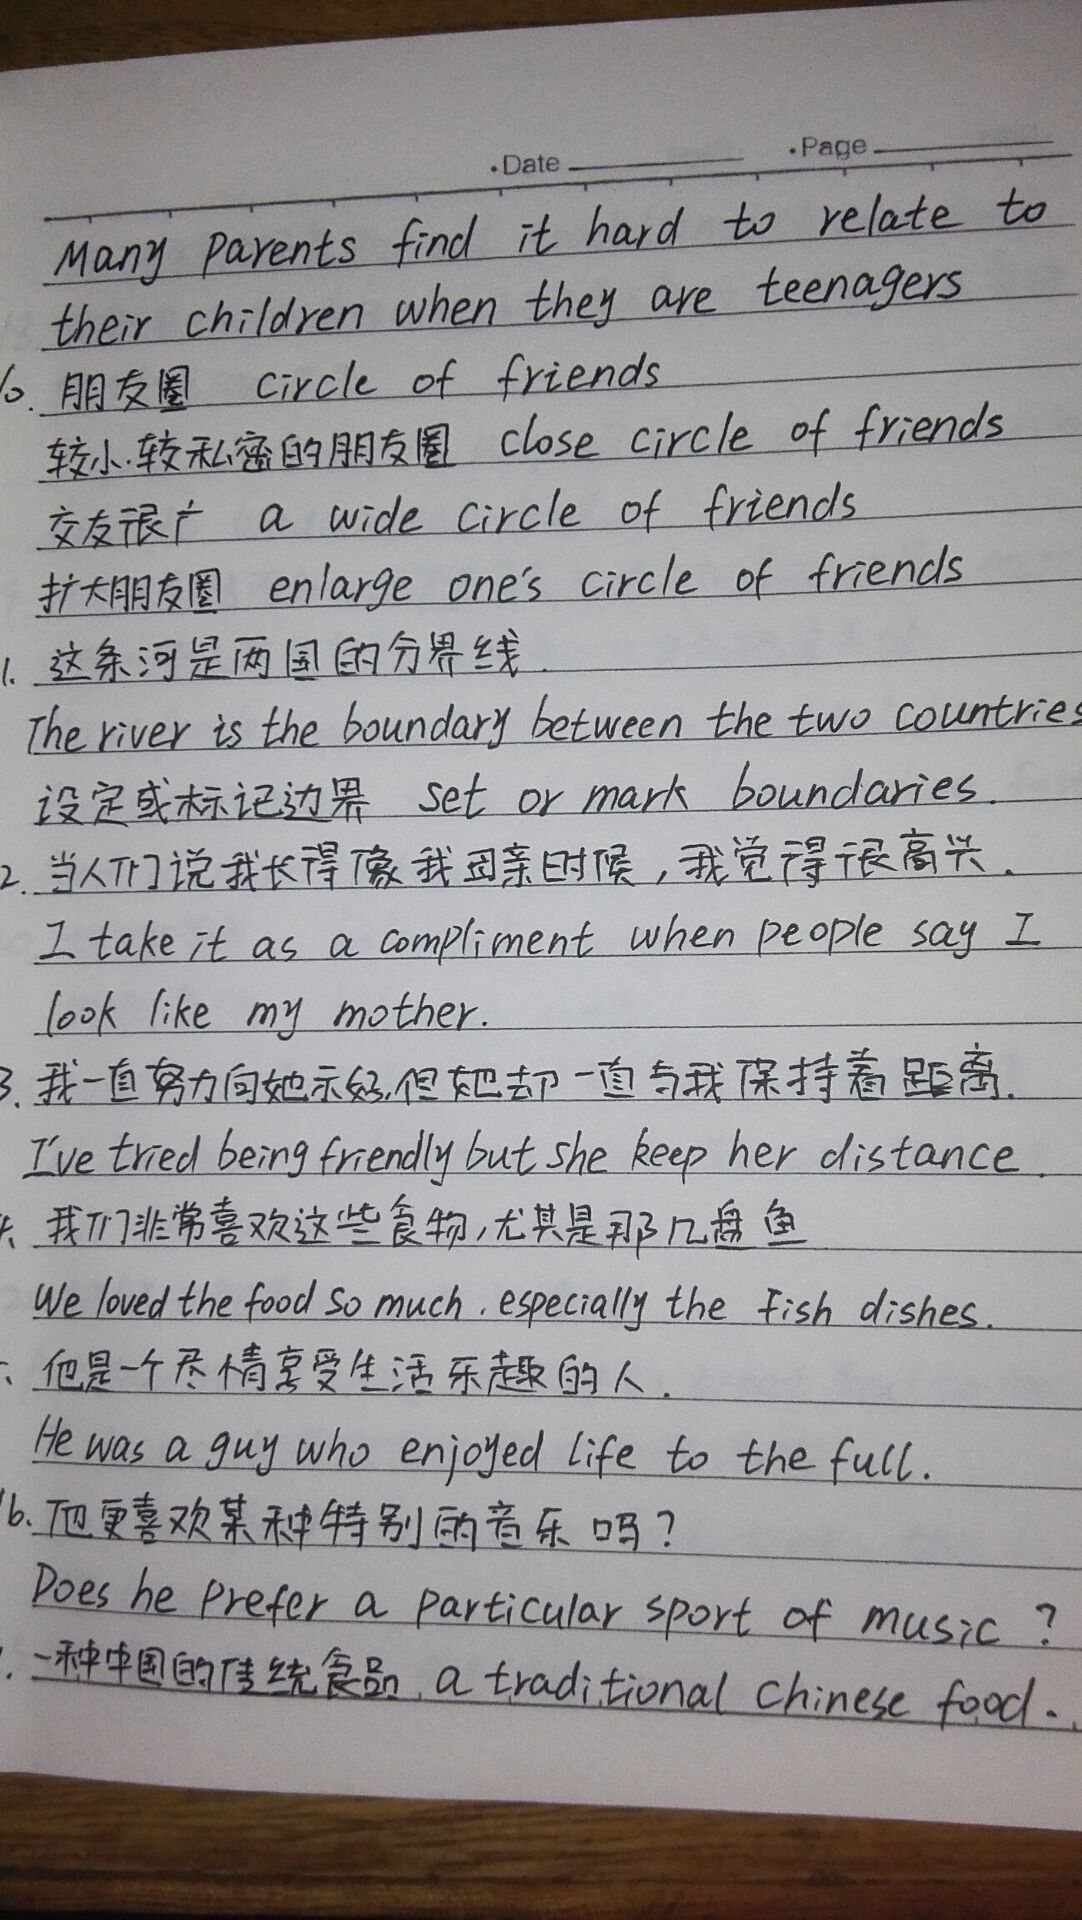 ·Date ·Page
Many parents find it hard to relate to
their children when they are teenagers
10. 朋友圈 circle of friends
较小.较私密的朋友圈 close circle of friends
交友很广 a wide circle of friends
扩大朋友圈 enlarge one's circle of friends
1. 这条河是两国的分界线.
The river is the boundary between the two countries
设定或标记边界 set or mark boundaries.
2. 当人们说我长得像我母亲时候，我觉得很高兴.
I take it as a compliment when people say I
look like my mother.
3. 我一直努力向她示好,但她却一直与我保持着距离.
I've tried being friendly but she keep her distance.
4. 我们非常喜欢这些食物,尤其是那几盘鱼
We loved the food so much. especially the fish dishes.
他是一个尽情享受生活乐趣的人.
He was a guy who enjoyed life to the full.
16. 他更喜欢某种特别的音乐吗?
Does he prefer a particular sport of music?
一种中国的传统食品. a traditional Chinese food.